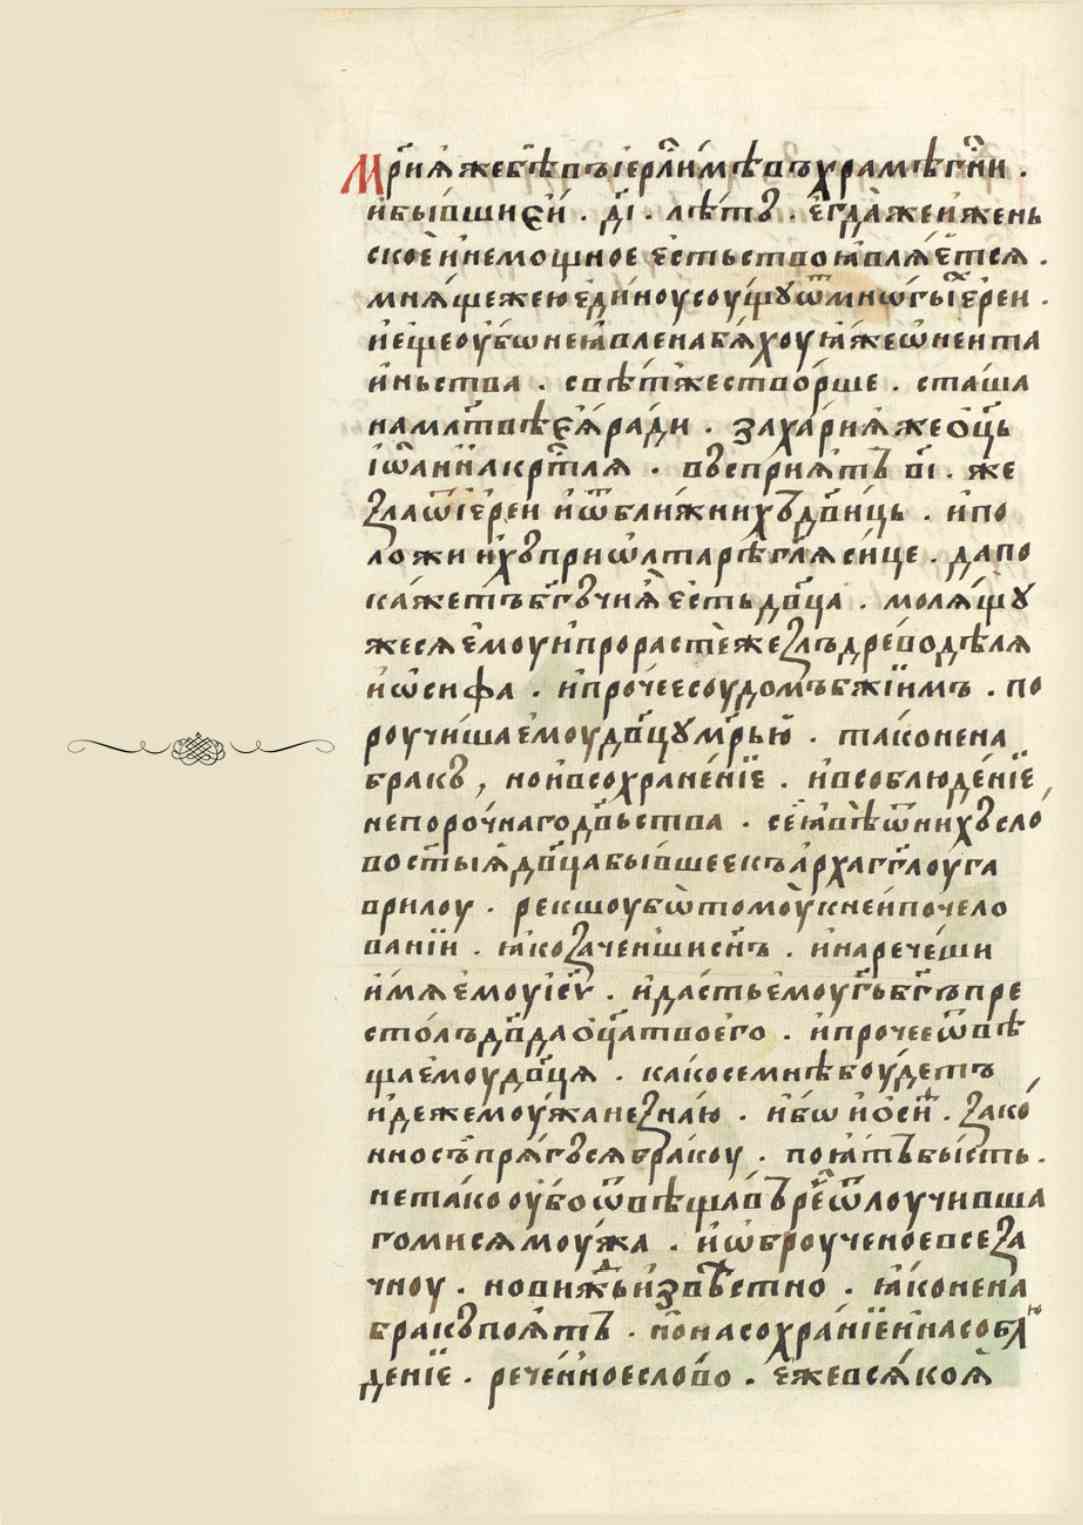 Мр҃иꙗ же бѣ въ іерⷭ҇лимѣ въ храмѣ гн҃и .
и бывши єи . д҃і . лѣтъ . егда же и жень
ское и немощное естьство ꙗвлѧетсѧ .
мнѧще же ю едину соущꙋ ѿ мноⷢ҇гы іереи .
и еще оубѡ не ꙗвлена бѧхоу ꙗже ѡ неи та
иньства . свѣт же створше . сташа
на млт҃вѣ еѧ ради . захариꙗ же ѻц҃ь
іѡанна крⷭ҇тлѧ . въспрїѧтъ в҃і . же
злаѿ іереи и ѿ ближнихъ двⷪ҇иць . и по
ложи ихъ при ѡлтарѣ гл҃ѧ сице . да по
кажетъ бг҃ъ чиꙗ есть двⷪ҇ца . молѧщꙋ
жесѧ емоу и прорасте жезлъ древодѣлѧ
иѡсифа . и прочее соудомъ бжїимъ . по
роучиша емоу двⷪ҇цꙋ мр҃ью . тако не на
бракъ , но и в сохраненїе . и в соблюденїе
непорочнаго двⷪ҇ьства . се ꙗвѣ ѿ нихъ сло
во ст҃ыѧ двⷪ҇ца бывшее къ архагг҃лоу га
врилоу . рекшоубѡ томоу к неи по чело
ваніи . ꙗко зачнеши сн҃ъ . и наречеши
имѧ емоу іс҃ꙋ . и дасть емоу г҃ь бг҃ъ пре
столъ дв҃да оц҃а твоего . и прочее ѿвѣ
ща емоу двⷪ҇цѧ . како се мнѣ боудетъ
идеже моужа не знаю . ибѡ иосиⷴ . зако
нно съпрѧгъсѧ бракоу . поꙗтъ бысть .
не тако оубо ѿвѣщавъ рⷱ҇е ѿлоучивша
гомисѧ моужа . и ѡброученое все за
чноу . но вижⷣь извѣстно . ꙗко не на
бракъ поѧтъ . но на сохраніе и на соблⷨ
деніе . реченное слово . еже всѧкоꙗ